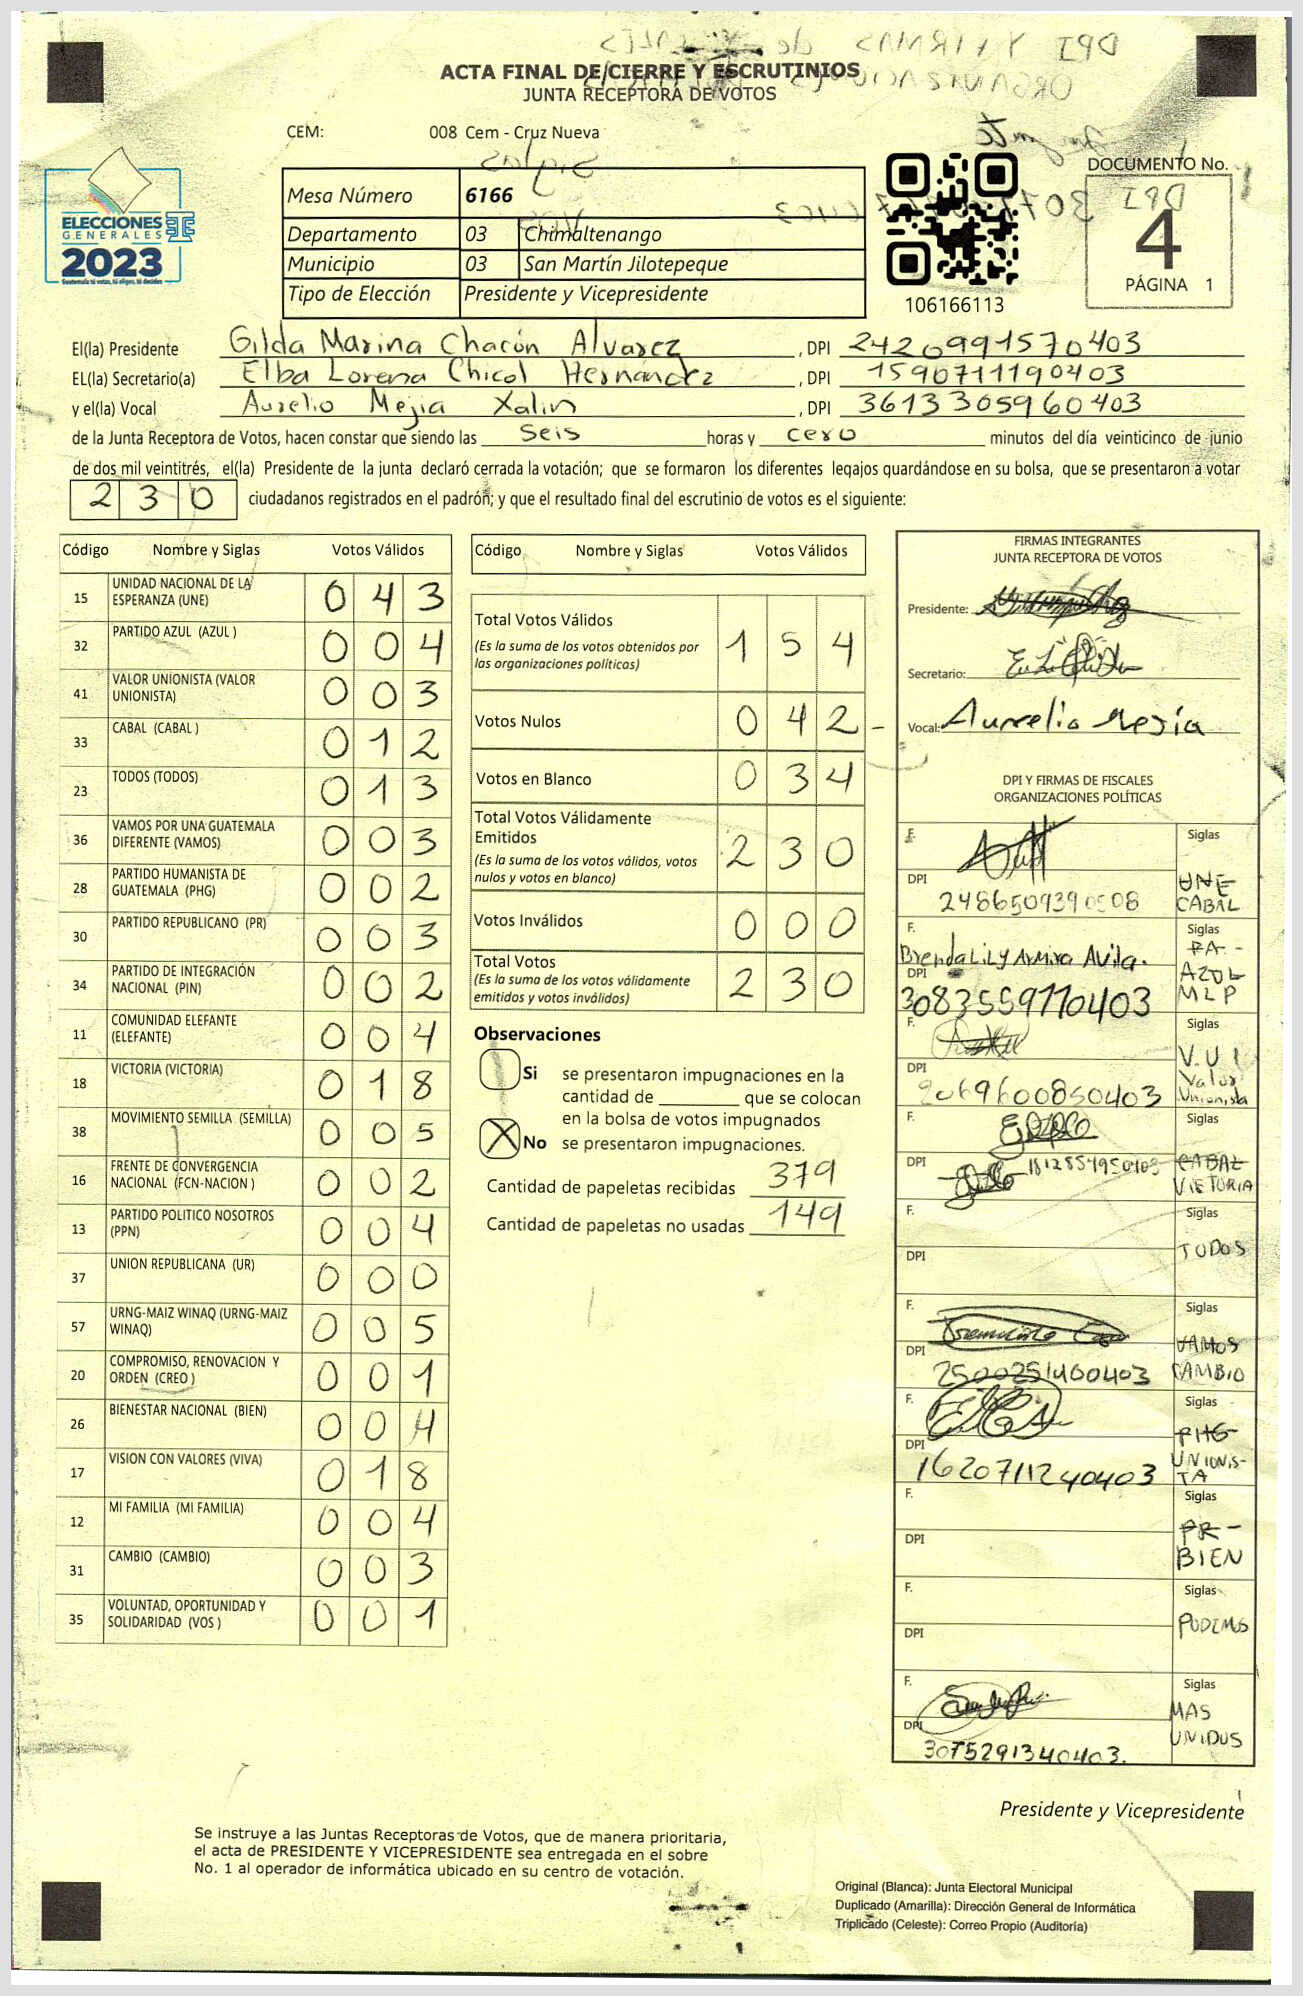 ACTA FINAL DE CIERRE Y ESCRUTINIOS
JUNTA RECEPTORA DE VOTOS
CEM: 008 Cem - Cruz Nueva
ELECCIONES
GENERALES
2023
Guatemala tú votas, tú eliges, tú decides
Mesa Número 6166
Departamento 03 Chimaltenango
Municipio 03 San Martín Jilotepeque
Tipo de Elección Presidente y Vicepresidente
106166113
DOCUMENTO No.
4
PÁGINA 1
El(la) Presidente Gilda Marina Chacón Alvarez, DPI 2420991570403
EL(la) Secretario(a) Elba Lorena Chicol Hernández, DPI 1590711190403
y el(la) Vocal Aurelio Mejia Xalin, DPI 3613305960403
de la Junta Receptora de Votos, hacen constar que siendo las seis horas y cero minutos del día veinticinco de junio
de dos mil veintitrés, el(la) Presidente de la junta declaró cerrada la votación; que se formaron los diferentes legajos guardándose en su bolsa, que se presentaron a votar
230 ciudadanos registrados en el padrón; y que el resultado final del escrutinio de votos es el siguiente:
Código Nombre y Siglas Votos Válidos
15 UNIDAD NACIONAL DE LA ESPERANZA (UNE) 043
32 PARTIDO AZUL (AZUL ) 004
41 VALOR UNIONISTA (VALOR UNIONISTA) 003
33 CABAL (CABAL ) 012
23 TODOS (TODOS) 013
36 VAMOS POR UNA GUATEMALA DIFERENTE (VAMOS) 003
28 PARTIDO HUMANISTA DE GUATEMALA (PHG) 002
30 PARTIDO REPUBLICANO (PR) 003
34 PARTIDO DE INTEGRACIÓN NACIONAL (PIN) 002
11 COMUNIDAD ELEFANTE (ELEFANTE) 004
18 VICTORIA (VICTORIA) 018
38 MOVIMIENTO SEMILLA (SEMILLA) 005
16 FRENTE DE CONVERGENCIA NACIONAL (FCN-NACION ) 002
13 PARTIDO POLITICO NOSOTROS (PPN) 004
37 UNION REPUBLICANA (UR) 000
57 URNG-MAIZ WINAQ (URNG-MAIZ WINAQ) 005
20 COMPROMISO, RENOVACION Y ORDEN (CREO ) 001
26 BIENESTAR NACIONAL (BIEN) 004
17 VISION CON VALORES (VIVA) 018
12 MI FAMILIA (MI FAMILIA) 004
31 CAMBIO (CAMBIO) 003
35 VOLUNTAD, OPORTUNIDAD Y SOLIDARIDAD (VOS ) 001
Código Nombre y Siglas Votos Válidos
Total Votos Válidos 154
(Es la suma de los votos obtenidos por
las organizaciones políticas)
Votos Nulos 042 -
Votos en Blanco 034
Total Votos Válidamente
Emitidos 230
(Es la suma de los votos válidos, votos
nulos y votos en blanco)
Votos Inválidos 000
Total Votos 230
(Es la suma de los votos válidamente
emitidos y votos inválidos)
Observaciones
Si se presentaron impugnaciones en la
cantidad de ________ que se colocan
en la bolsa de votos impugnados
X No se presentaron impugnaciones.
Cantidad de papeletas recibidas 379
Cantidad de papeletas no usadas 149
FIRMAS INTEGRANTES
JUNTA RECEPTORA DE VOTOS
Presidente:
Secretario:
Vocal: Aurelio Mejía
DPI Y FIRMAS DE FISCALES
ORGANIZACIONES POLÍTICAS
F. Siglas
UNE
CABAL
DPI 2486509390508
F. Brenda Lily Siglas
PA -
AZUL
MLP
DPI 3083559770403
F. Siglas
V.U.
Valor
Unionista
DPI 2069600850403
F. Siglas
DPI 1812854950403
CABAL
VICTORIA
F. Siglas
DPI
TODOS
F. Siglas
VAMOS
CAMBIO
DPI 2500251460403
F. Siglas
PHG
UNIONIS-
TA
DPI 1620711240403
F. Siglas
DPI
PR -
BIEN
F. Siglas
DPI
PODEMOS
F. Siglas
MAS
UNIDOS
DPI 3075291340403.
Presidente y Vicepresidente
Se instruye a las Juntas Receptoras de Votos, que de manera prioritaria,
el acta de PRESIDENTE Y VICEPRESIDENTE sea entregada en el sobre
No. 1 al operador de informática ubicado en su centro de votación.
Original (Blanca): Junta Electoral Municipal
Duplicado (Amarilla): Dirección General de Informática
Triplicado (Celeste): Correo Propio (Auditoría)